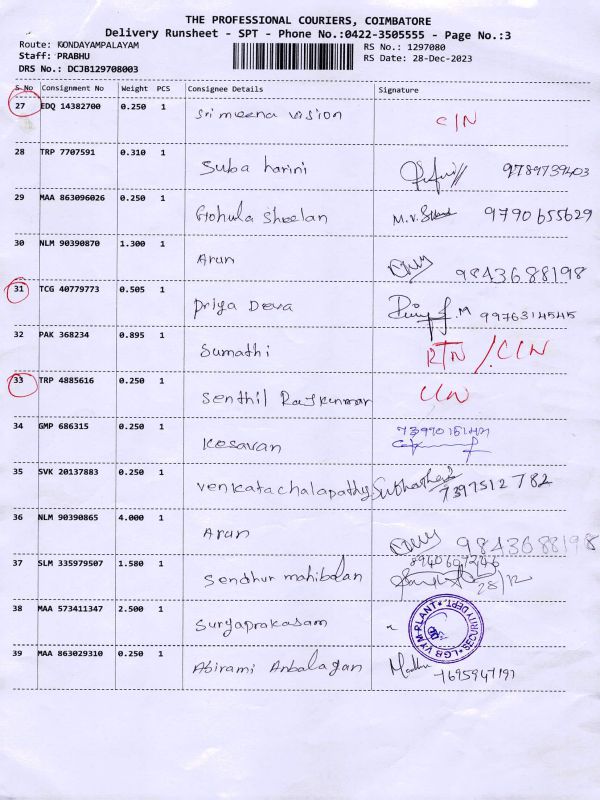 THE PROFESSIONAL COURIERS, COIMBATORE
Delivery Runsheet - SPT - Phone No.:0422-3505555 - Page No.:3
Route: KONDAYAMPALAYAM RS No.: 1297080
Staff: PRABHU RS Date: 28-Dec-2023
DRS No.: DCJB129708003
S No Consignment No Weight PCS Consignee Details Signature
27 EDQ 14382700 0.250 1 Sri meena vision C/N
28 TRP 7707591 0.310 1 Suba harini 9789739403
29 MAA 863096026 0.250 1 Gohula Sheelan M.V. 9790655629
30 NLM 90390870 1.300 1 Arun 9843688198
31 TCG 40779773 0.505 1 Priya Deva 9976314545
32 PAK 368234 0.895 1 Sumathi RTN / CIN
33 TRP 4885616 0.250 1 Senthil Rajkummar
34 GMP 686315 0.250 1 Kesavan
35 SVK 20137883 0.250 1 Venkatachalapathy 7397512782
36 NLM 90390865 4.000 1 Arun 9843688198
37 SLM 335979507 1.580 1 Sendhur mahibalan 28/12
38 MAA 573411347 2.500 1 Suryaprakasam LGB VYM-PLANT SECURITY DEPT.
39 MAA 863029310 0.250 1 Abirami Anbalagan 7695947197